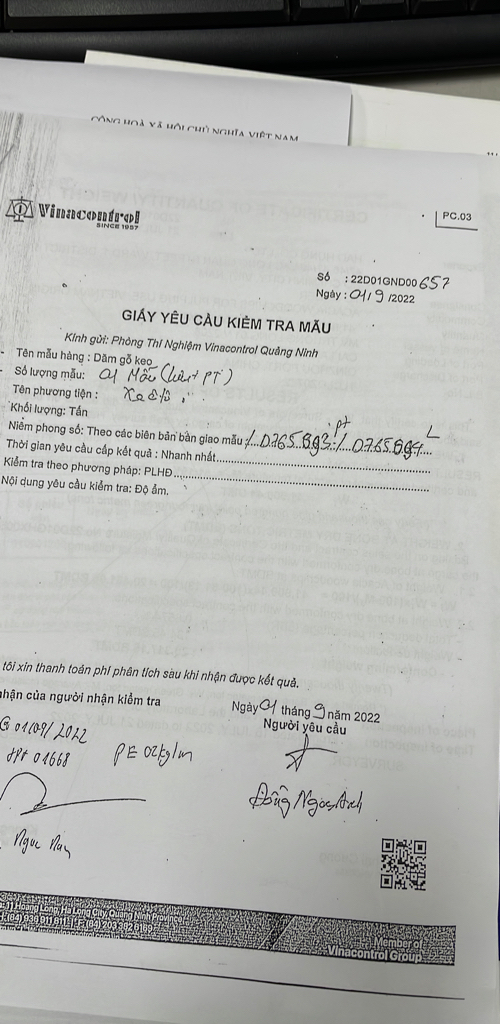 CỘNG HOÀ XÃ HỘI CHỦ NGHĨA VIỆT NAM
Vinacontrol
SINCE 1957
PC.03
Số : 22D01GND00657
Ngày : 01/9/2022
GIẤY YÊU CẦU KIỂM TRA MẪU
Kính gửi: Phòng Thí Nghiệm Vinacontrol Quảng Ninh
- Tên mẫu hàng : Dăm gỗ keo
- Số lượng mẫu: 01 Mẫu (lưu + PT)
Tên phương tiện : Xe ô tô
Khối lượng: Tấn
Niêm phong số: Theo các biên bản bàn giao mẫu / 0765893 pt / 0765894 L
Thời gian yêu cầu cấp kết quả : Nhanh nhất
Kiểm tra theo phương pháp: PLHĐ
Nội dung yêu cầu kiểm tra: Độ ẩm.
tôi xin thanh toán phí phân tích sau khi nhận được kết quả.
nhận của người nhận kiểm tra
Ngày 01 tháng 9 năm 2022
Người yêu cầu
01/09/2022
01668
PE 02kg/m
Đồng Ngọc Anh
Ngọc
11 Hoang Long, Ha Long City, Quang Ninh Province
(84) 939 911 811 | F: (84) 203 382 6169
Member of
Vinacontrol Group